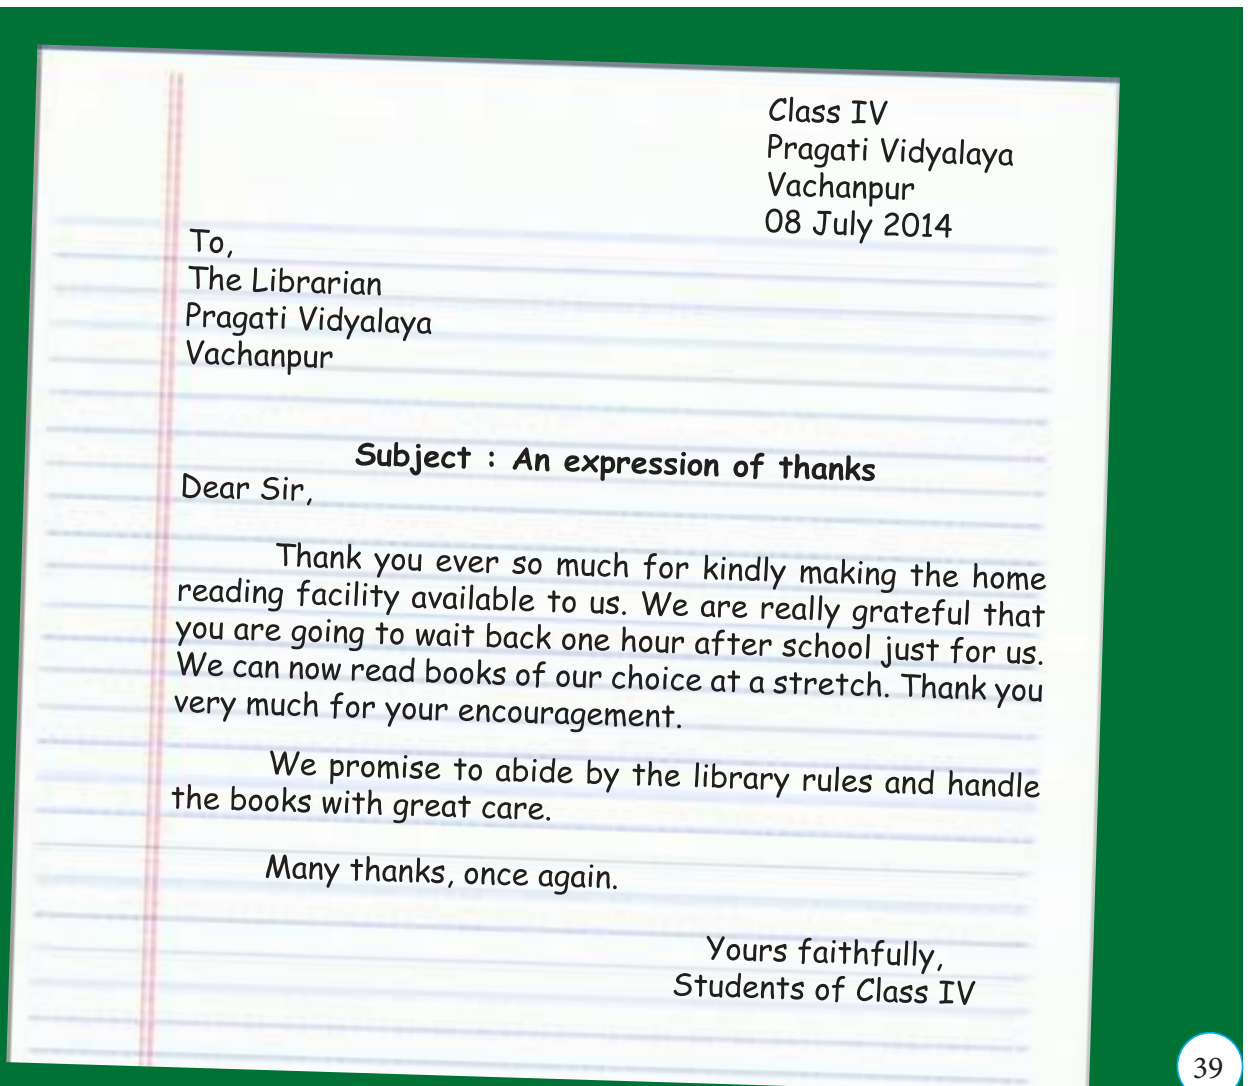 Class IV
Pragati Vidyalaya
Vachanpur
08 July 2014
To,
The Librarian
Pragati Vidyalaya
Vachanpur
Subject : An expression of thanks
Dear Sir,
Thank you ever so much for kindly making the home
reading facility available to us. We are really grateful that
you are going to wait back one hour after school just for us.
We can now read books of our choice at a stretch. Thank you
very much for your encouragement.
We promise to abide by the library rules and handle
the books with great care.
Many thanks, once again.
Yours faithfully,
Students of Class IV
39